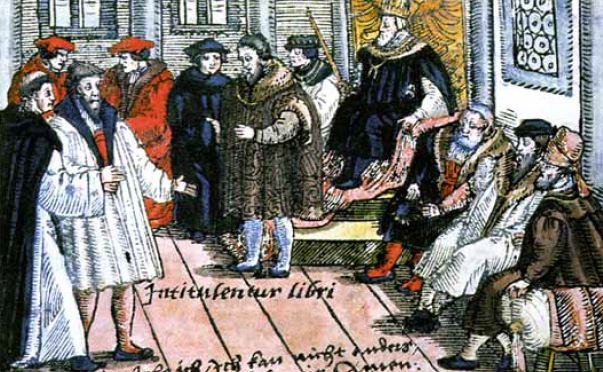 Intitulentur libri
ich, Ich kan nicht anders,
Amen.